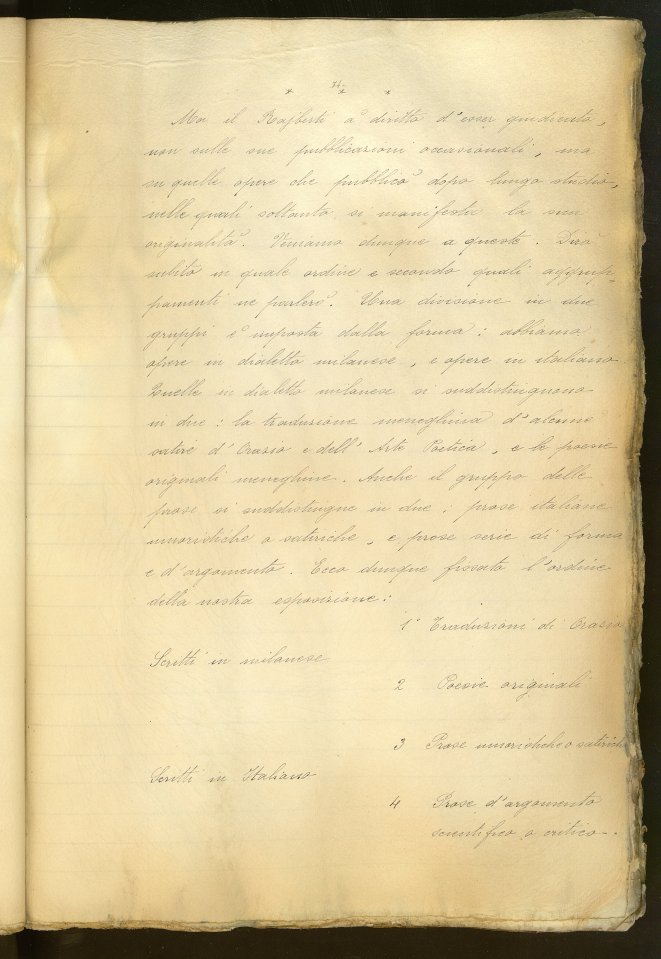 74
* * *
Ma il Rajberti à diritto d'esser giudicato,
non sulle sue pubblicazioni occasionali, ma
su quelle opere che pubblicò dopo lungo studio,
nelle quali soltanto si manifesta la sua
originalità. Veniamo dunque a queste. Dirò
subito in quale ordine e secondo quali aggrup-
pamenti ne parlerò. Una divisione in due
gruppi è imposta dalla forma: abbiamo
opere in dialetto milanese, e opere in italiano
Quelle in dialetto milanese si suddistinguono
in due: la traduzione meneghina d'alcune
satire d'Orazio e dell'Arte Poetica, e le poesie
originali meneghine. Anche il gruppo delle
prose si suddistingue in due: prose italiane
umoristiche o satiriche, e prose serie di forma
e d'argomento. Ecco dunque fissato l'ordine
della nostra esposizione:
1° Traduzioni di Orazio
Scritti in milanese
2 Poesie originali
3 Prose umoristiche o satiriche
Scritti in Italiano
4 Prose d'argomento
scientifico o critico.